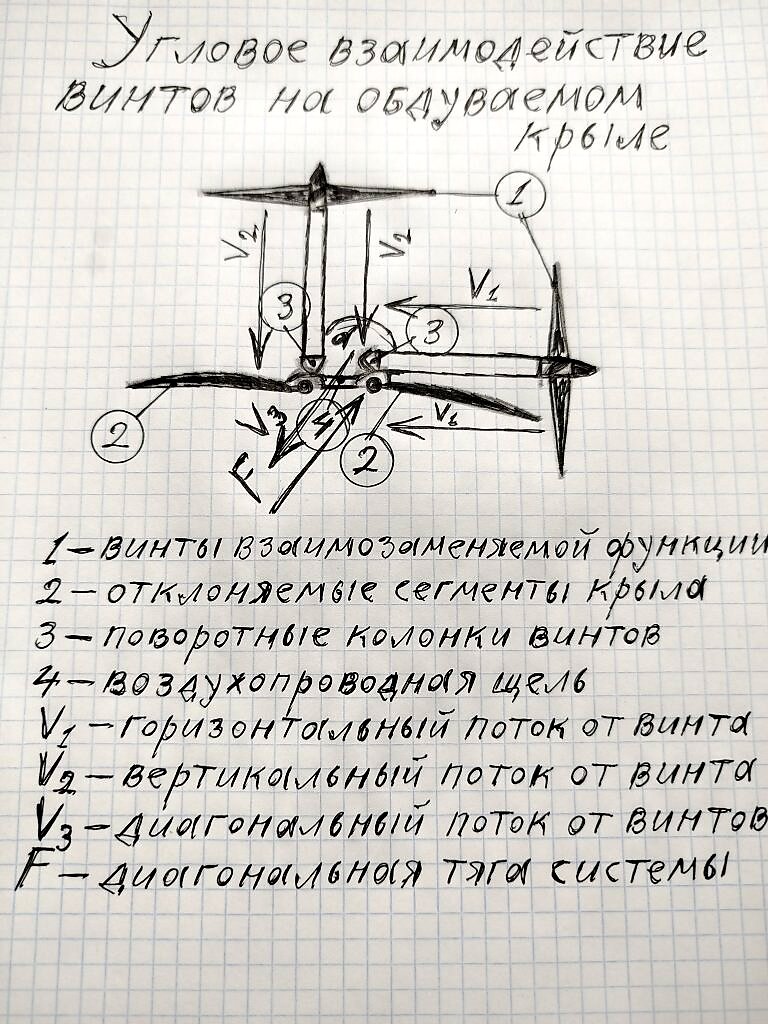 Угловое взаимодействие
винтов на обдуваемом
крыле
1
V2
V2
V1
3
α
3
2
V3
4
V1
2
F
1 – винты взаимозаменяемой функции
2 – отклоняемые сегменты крыла
3 – поворотные колонки винтов
4 – воздухопроводная щель
V1 – горизонтальный поток от винта
V2 – вертикальный поток от винта
V3 – диагональный поток от винтов
F – диагональная тяга системы